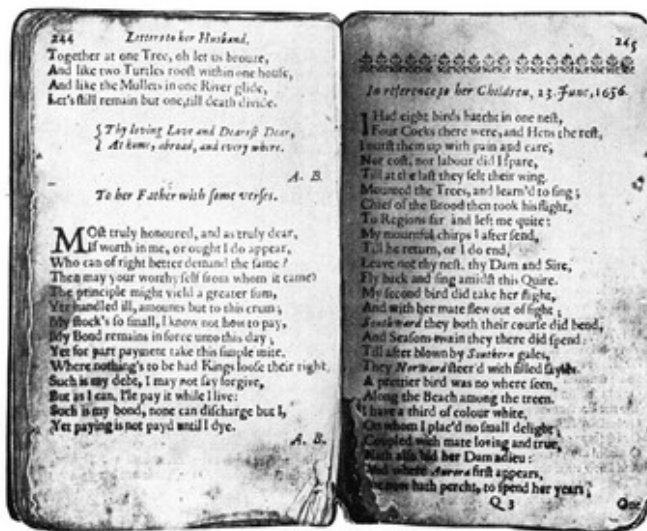 244 Letters to her Husband.
Together at one Tree, oh let us brouze,
And like two Turtles roost within one house,
And like the Mullets in one River glide,
Let's still remain but one, till death divide.
Thy loving Love and Dearest Dear,
At home, abroad, and every where.
A. B.
To her Father with some verses.
MOst truly honoured, and as truly dear,
If worth in me, or ought I do appear,
Who can of right better demand the same?
Then may your worthy self from whom it came?
The principle might yield a greater sum,
Yet handled ill, amounts but to this crum;
My stock's so small, I know not how to pay,
My Bond remains in force unto this day;
Yet for part payment take this simple mite,
Where nothing's to be had Kings loose their right,
Such is my debt, I may not say forgive,
But as I can, I'le pay it while I live:
Such is my bond, none can discharge but I,
Yet paying is not payd until I dye.
A. B.
245
In reference to her Children, 23. June, 1656.
I Had eight birds hatcht in one nest,
Four Cocks there were, and Hens the rest,
I nurst them up with pain and care,
Nor cost, nor labour did I spare,
Till at the last they felt their wing.
Mounted the Trees, and learn'd to sing;
Chief of the Brood then took his flight,
To Regions far and left me quite:
My mournful chirps I after send,
Till he return, or I do end,
Leave not thy nest, thy Dam and Sire,
Fly back and sing amidst this Quire.
My second bird did take her flight,
And with her mate flew out of sight;
Southward they both their course did bend,
And Seasons twain they there did spend:
Till after blown by Southern gales,
They Norward steer'd with filled sayles.
A prettier bird was no where seen,
Along the Beach among the treen.
I have a third of colour white,
On whom I plac'd no small delight;
Coupled with mate loving and true,
Hath also bid her Dam adieu:
And where Aurora first appears,
She now hath percht, to spend her years;
Q 3
One